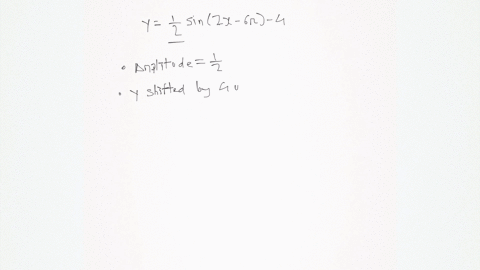 Y = 1/2 sin(2x-6π)-4
• Amplitude = 1/2
• Y shifted by 4 u